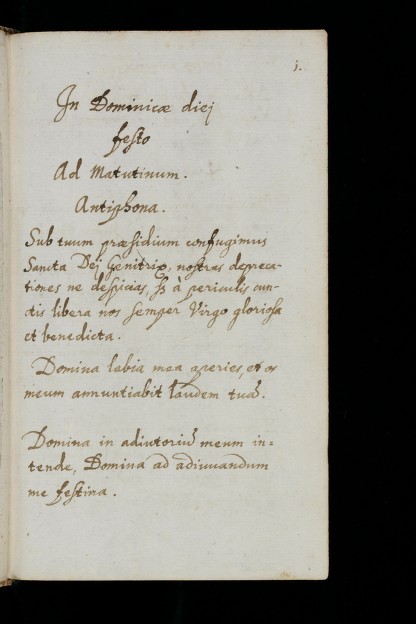 1.
In Dominicæ diej
festo
Ad Matutinum.
Antiphona.
Sub tuum præsidium confugimus
Sancta Dej Genitrix, nostras depreca-
tiones ne despicias, s3 à periculis cun-
ctis libera nos semper Virgo gloriosa
et benedicta.
Domina labia mea aperies, et os
meum annuntiabit laudem tuā.
Domina in adiutoriū meum in=
tende, Domina ad adiuuandum
me festina.